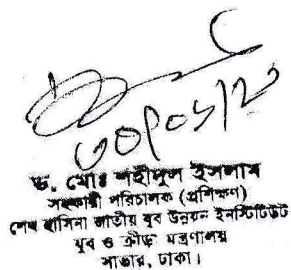 ৩০/০১/২
ড. মোঃ শহীদুল ইসলাম
সহকারী পরিচালক (প্রশিক্ষণ)
শেখ হাসিনা জাতীয় যুব উন্নয়ন ইনস্টিটিউট
যুব ও ক্রীড়া মন্ত্রণালয়
সাভার, ঢাকা।